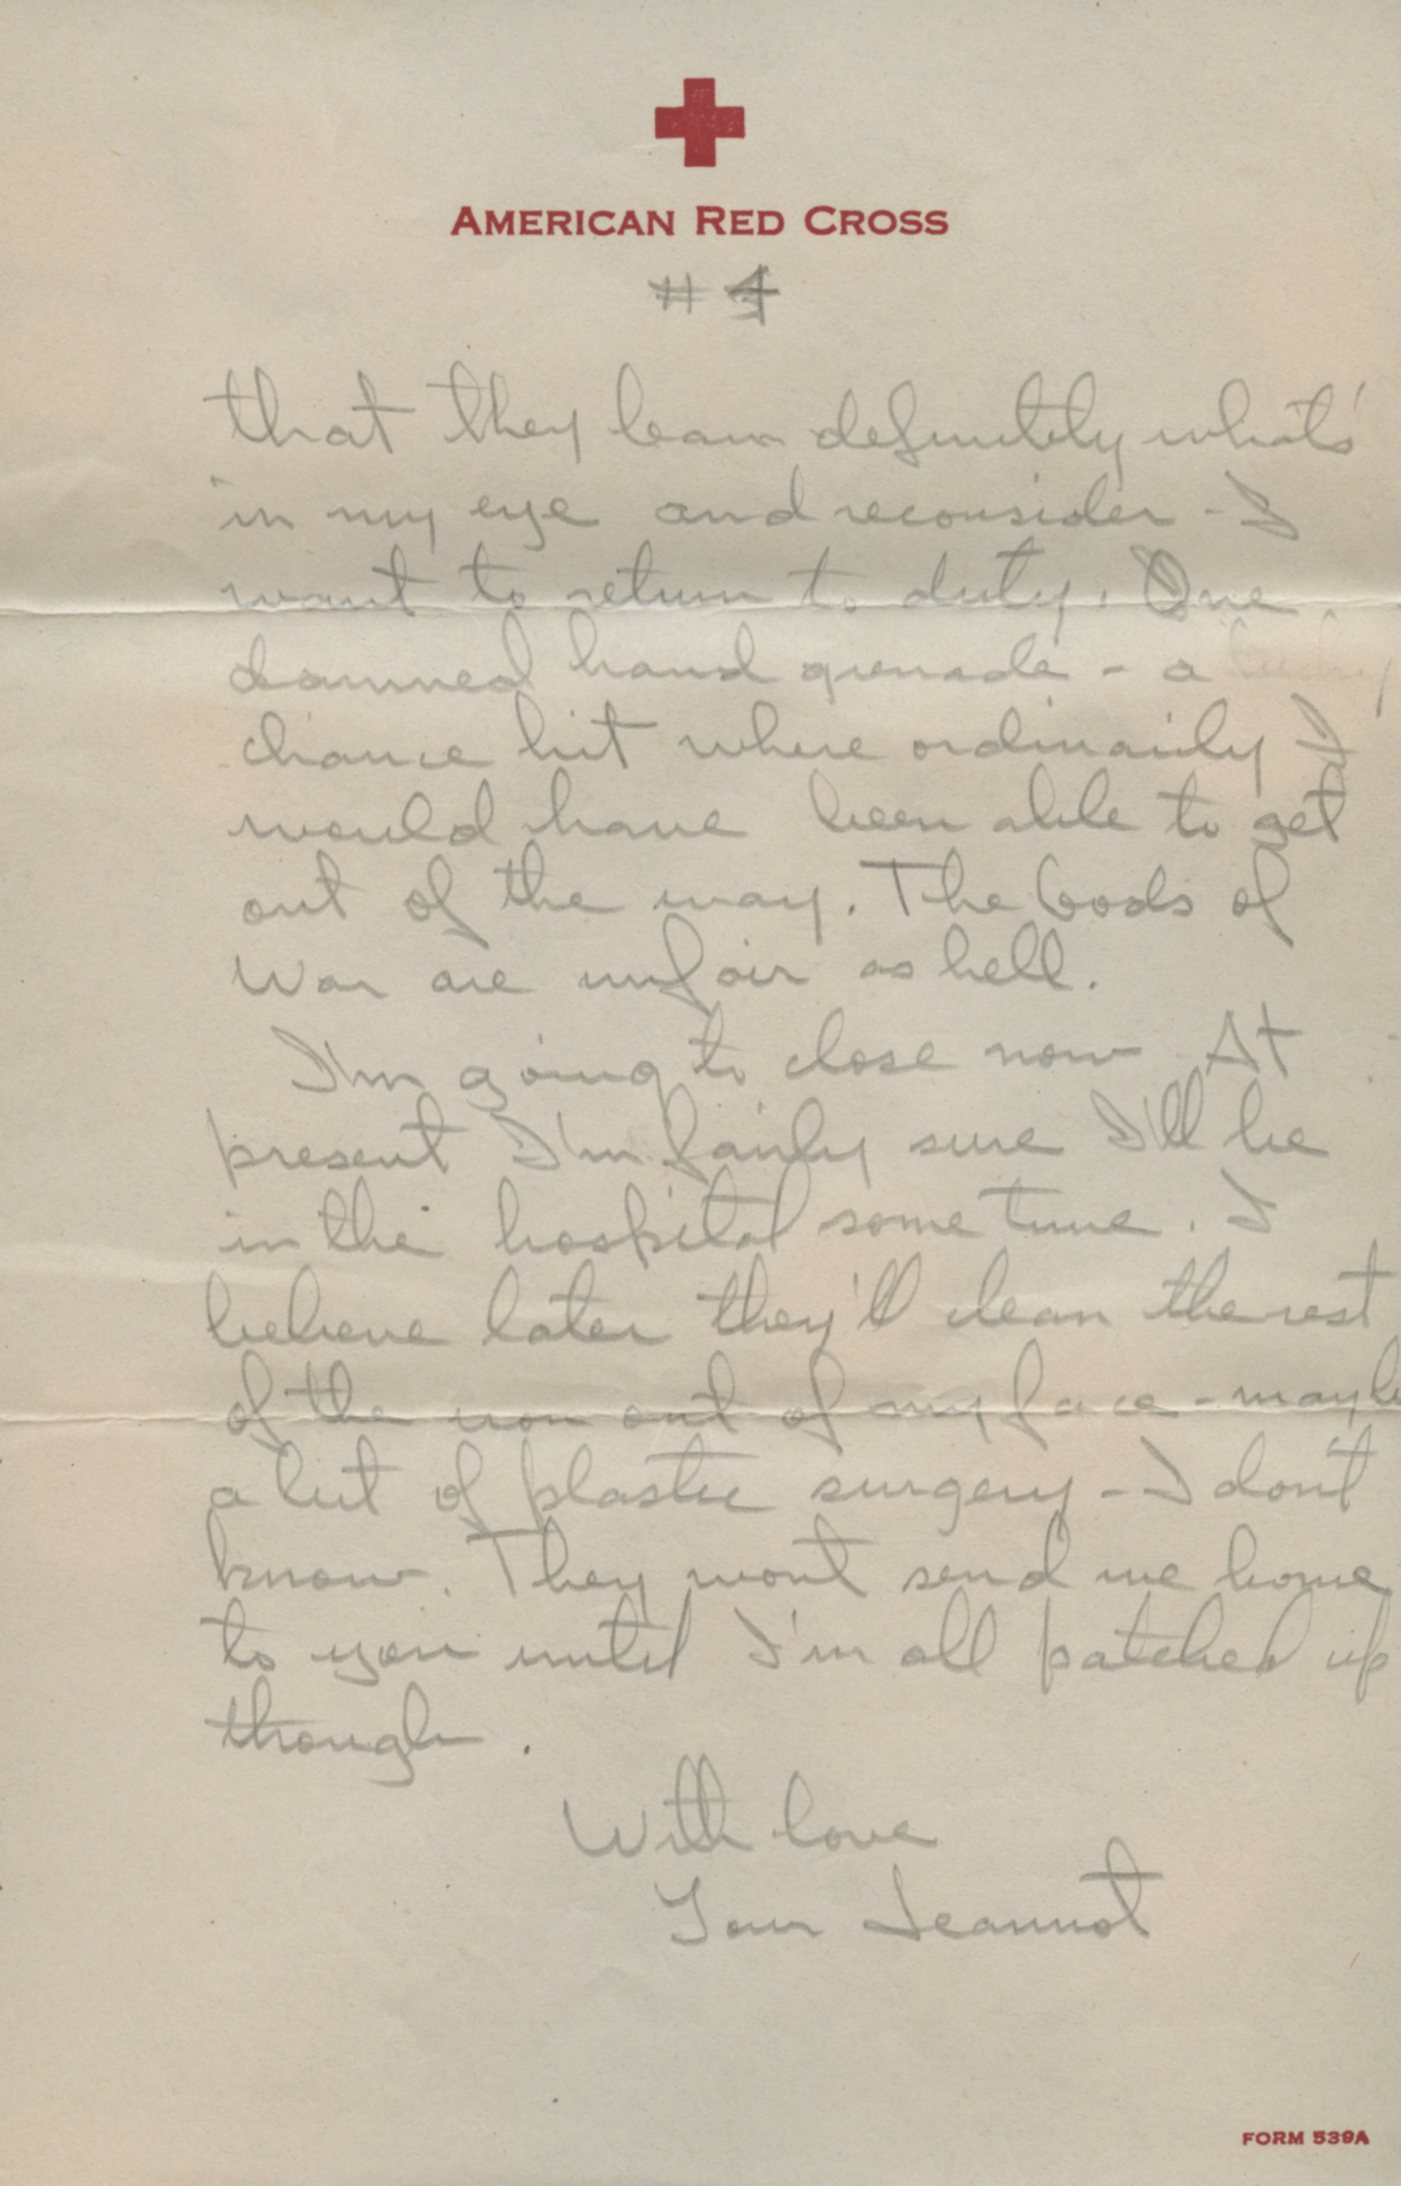 AMERICAN RED CROSS
# 4
that they learn definitely what's
in my eye and reconsider - I
want to return to duty. One
damned hand grenade - a
chance hit where ordinarily I
would have been able to get
out of the way. The Gods of
War are unfair as hell.
I'm going to close now. At
present I'm fairly sure I'll be
in the hospital some time. I
believe later they'll clean the rest
of the iron out of my face - maybe
a bit of plastic surgery - I don't
know. They wont send me home
to you until I'm all patched up
though.
With love
Your Jeannot
FORM 539A